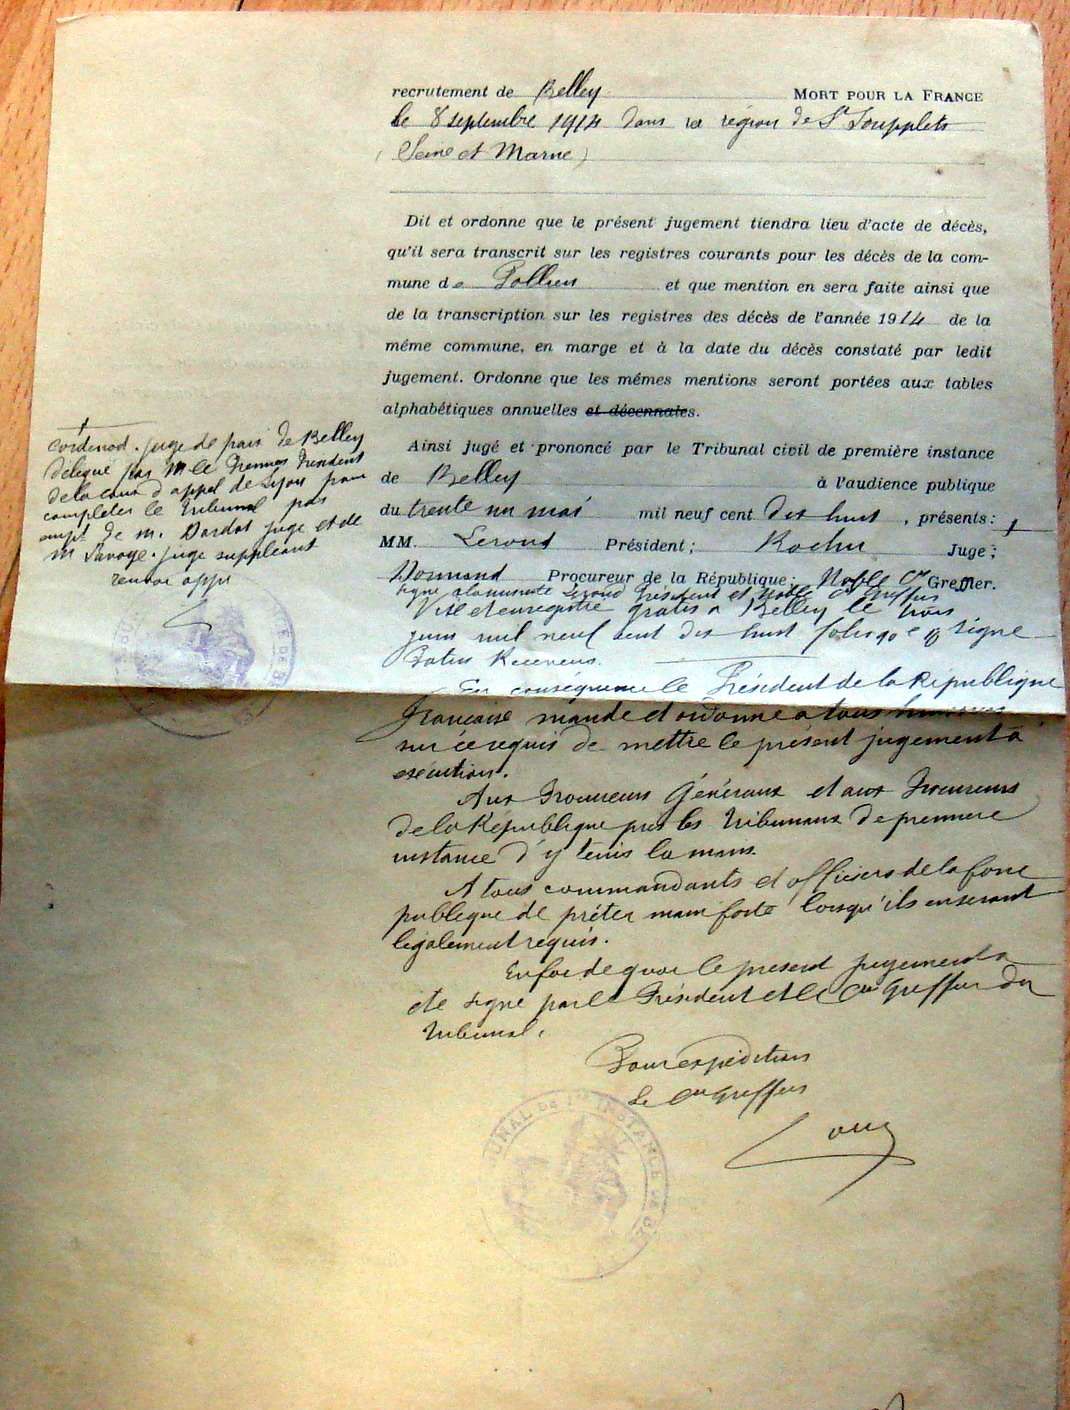 recrutement de Belley MORT POUR LA FRANCE
le 8 septembre 1914 dans la région de St Soupplets
(Seine et Marne)
Dit et ordonne que le présent jugement tiendra lieu d'acte de décès,
qu'il sera transcrit sur les registres courants pour les décès de la com-
mune de Pollieu et que mention en sera faite ainsi que
de la transcription sur les registres des décès de l'année 1914 de la
même commune, en marge et à la date du décès constaté par ledit
jugement. Ordonne que les mêmes mentions seront portées aux tables
alphabétiques annuelles et décennales.
Ainsi jugé et prononcé par le Tribunal civil de première instance
de Belley à l'audience publique
du trente un mai mil neuf cent dix huit, présents:
MM. Leroud Président; Rochu Juge;
Dormand Procureur de la République; Noble Cis Greffier.
signé à la minute Leroud Président et Noble Cis Greffier
Visé et enregistré gratis à Belley le trois
juin mil neuf cent dix huit folio signé
Receveur.
En conséquence le Président de la République
Française mande et ordonne à tous huissiers
sur ce requis de mettre le présent jugement à
exécution.
Aux Procureurs Généraux et aux Procureurs
de la République près les Tribunaux de première
instance d'y tenir la main.
A tous commandants et officiers de la force
publique de prêter main forte lorsqu'ils en seront
légalement requis.
En foi de quoi le présent jugement a
été signé par le Président et le Cis Greffier du
Tribunal.
Pour expédition
Le Cis Greffier
juge de paix de Belley
délégué par M le Premier Président
de la cour d'appel de Lyon pour
compléter le Tribunal par
empt de M. Dardat juge et de
M Savoye juge suppléant
renvoi appr
TRIBUNAL DE 1re INSTANCE DE